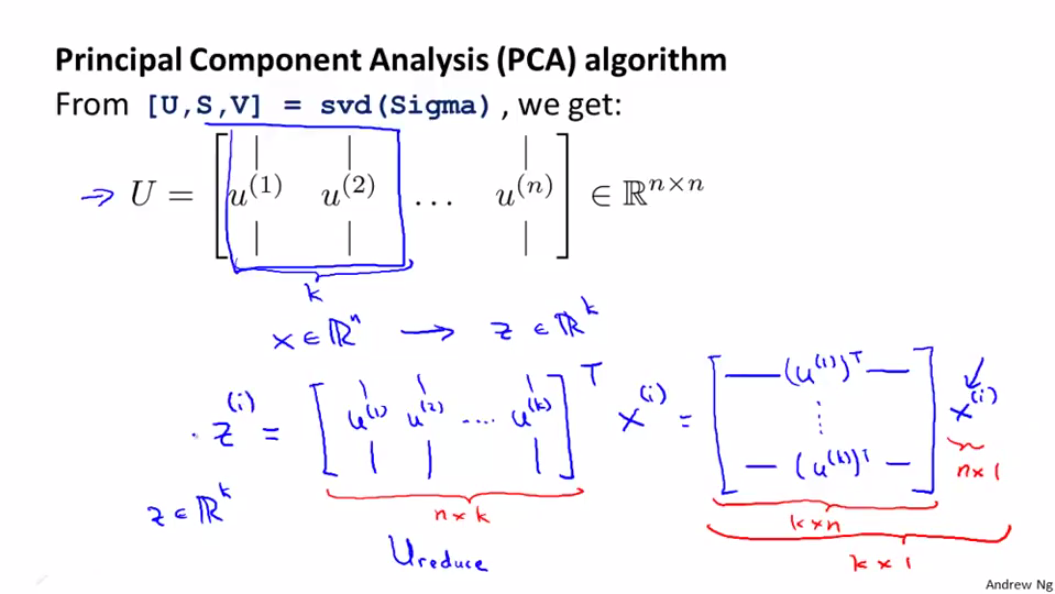 Principal Component Analysis (PCA) algorithm
From [U,S,V] = svd(Sigma) , we get:
→ U = [ u^(1) u^(2) … u^(n) ] ∈ ℝ^{n×n}
k
x ∈ ℝ^n → z ∈ ℝ^k
z^(i) = [ u^(1) u^(2) .... u^(k) ]^T x^(i) = [ — (u^(1))^T — ⋮ — (u^(k))^T — ] x^(i)
z ∈ ℝ^k n × k k × n n × 1
U reduce k × 1
Andrew Ng